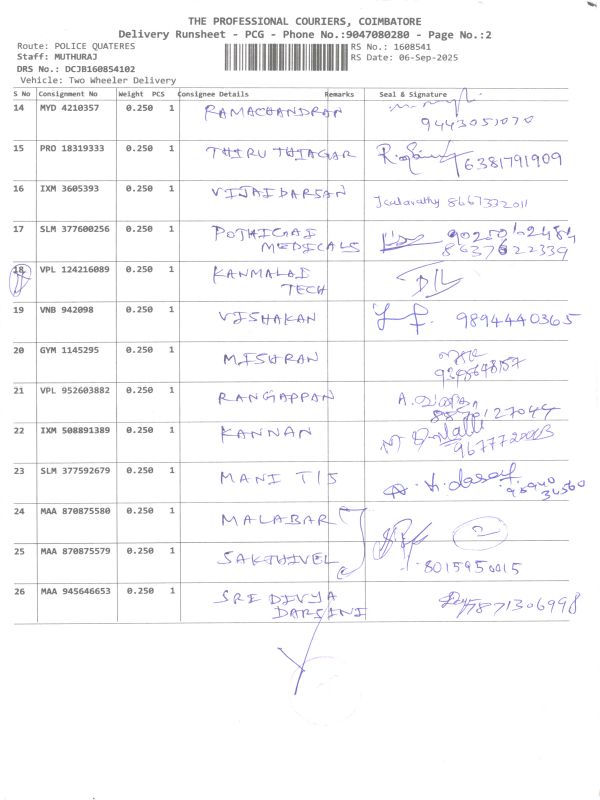 THE PROFESSIONAL COURIERS, COIMBATORE
Delivery Runsheet - PCG - Phone No.:9047080280 - Page No.:2
Route: POLICE QUATERES RS No.: 1608541
Staff: MUTHURAJ RS Date: 06-Sep-2025
DRS No.: DCJB160854102
Vehicle: Two Wheeler Delivery
S No Consignment No Weight PCS Consignee Details Remarks Seal & Signature
14 MYD 4210357 0.250 1 RAMACHANDRAN
9443051070
15 PRO 18319333 0.250 1 THIRU THIAGAR 6381791909
16 IXM 3605393 0.250 1 VIJAIDARSAN 8667332011
17 SLM 377600256 0.250 1 POTHIGAI
MEDICALS 8637622339
18 VPL 124216089 0.250 1 KANMALAI
TECH D/L
19 VNB 942098 0.250 1 VISHAKAN 9894440365
20 GYM 1145295 0.250 1 MISHRAN
21 VPL 952603882 0.250 1 RANGAPPAN A.
22 IXM 508891389 0.250 1 KANNAN
23 SLM 377592679 0.250 1 MANI T/S
24 MAA 870875580 0.250 1 MALABAR 2
25 MAA 870875579 0.250 1 SAKTHIVEL 8015950015
26 MAA 945646653 0.250 1 SRE DIVYA
DARSINI 7871306998